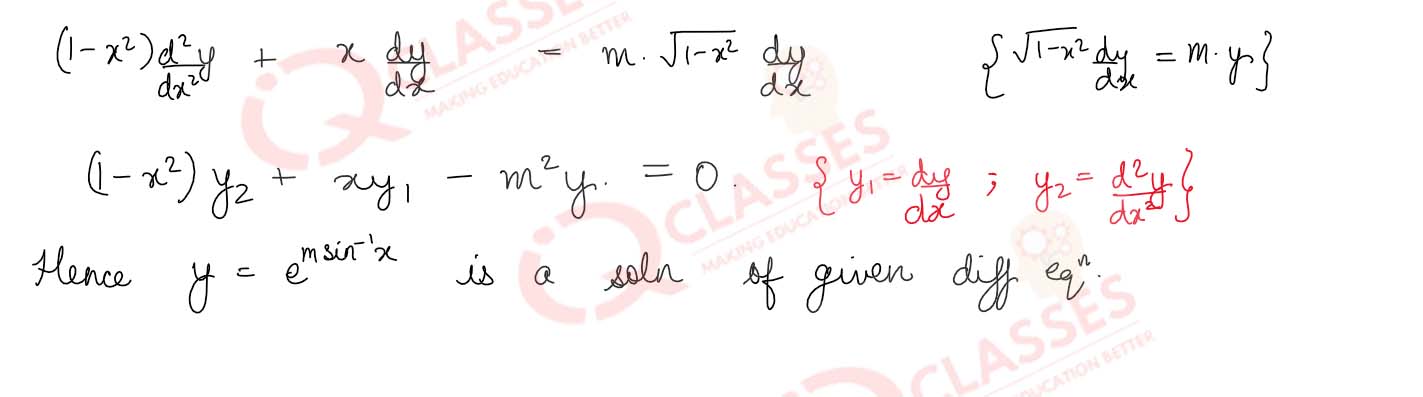 (1-x²) d²y/dx² + x dy/dx = m.√(1-x²) dy/dx {√(1-x²) dy/dx = m.y}
(1-x²) y₂ + xy₁ - m²y. = 0. {y₁ = dy/dx ; y₂ = d²y/dx²}
Hence y = e^(m sin⁻¹x) is a soln of given diff eqⁿ.
CLASSES
MAKING EDUCATION BETTER
CLASSES
MAKING EDUCATION BETTER
CLASSES
EDUCATION BETTER